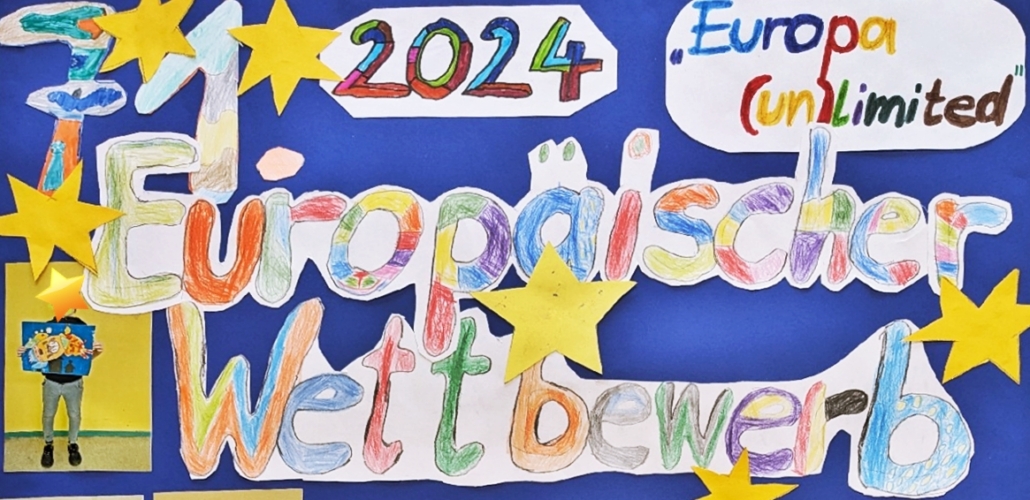 71.
2024
„Europa
(un)limited"
Europäischer
Wettbewerb